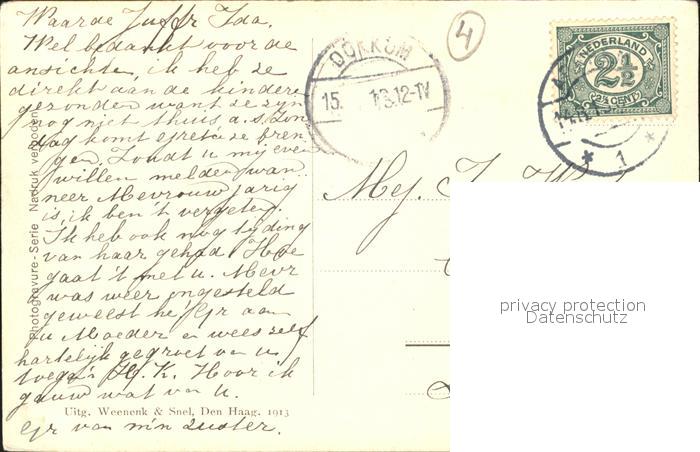 Waarde Juffr Ida.
Wel bedankt voor de
ansichten, ik heb ze
direkt aan de kinderen
gezonden want ze zyn
nog niet thuis a.s. Zon
dag komt ze bren
gen. Zoudt u my even
willen melden wan
neer Mevrouw jarig
is, ik ben 't vergeten.
Ik heb ook nog tyding
van haar gehad Hoe
gaat 't met u. Mevr
was weer ongesteld
geweest hé! Gr aan
u Moeder en wees zelf
hartelijk gegroet van uw
H. K. Hoor ik
gauw wat van u.
Uitg. Weenenk & Snel, Den Haag. 1913
Gr van m'n zuster.
Photogravure-Serie Nadruk verboden
4
DOKKUM
15. 13.12-IV
NEDERLAND
2½
2½ CENT
1
Mej.
privacy protection
Datenschutz